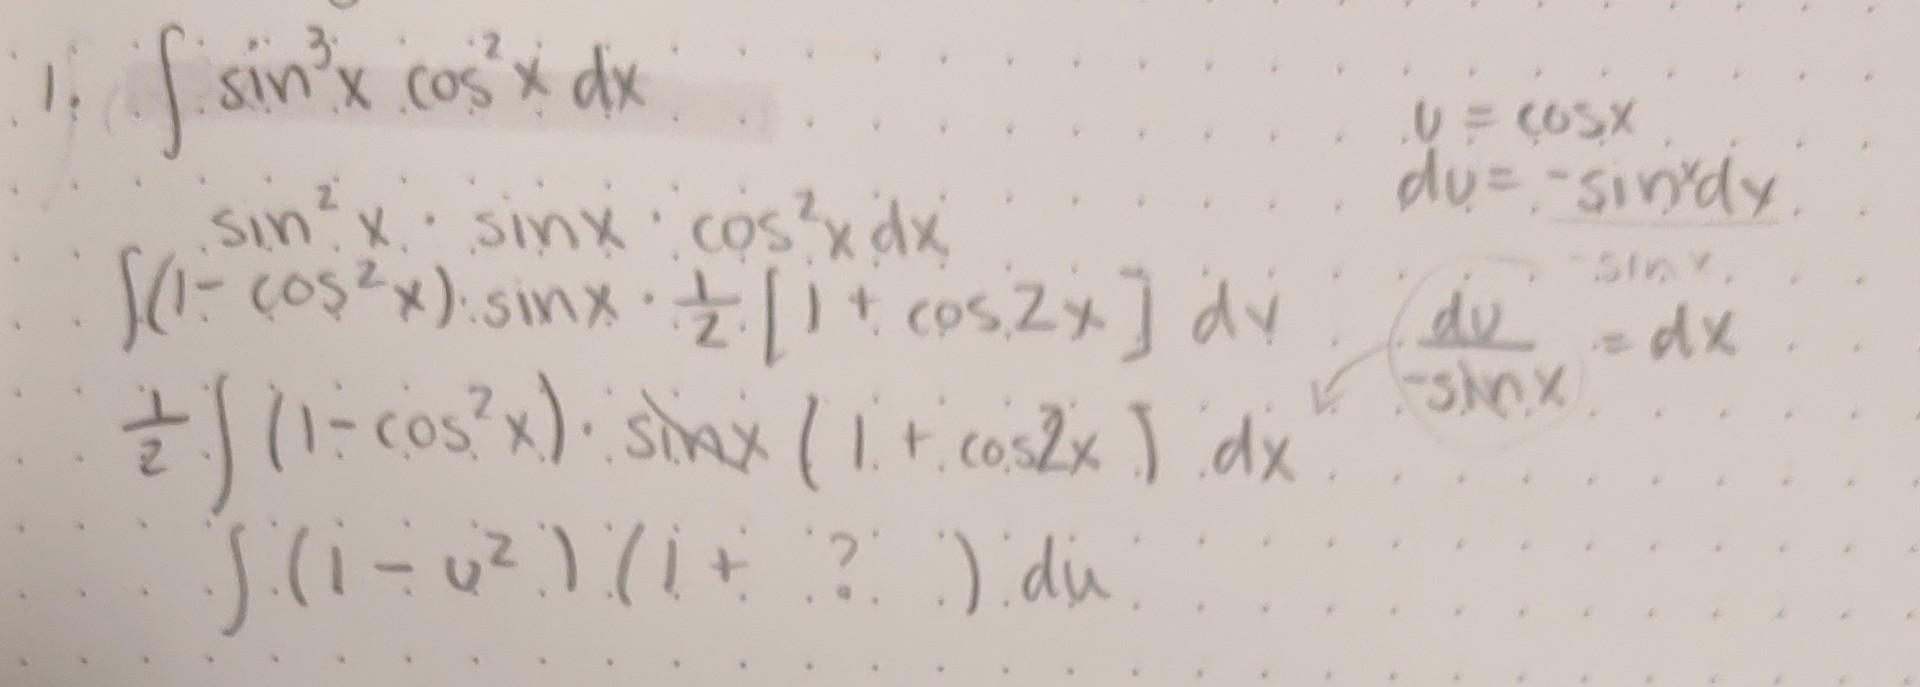 1. ∫ sin³x cos²x dx
u = cosx
du = -sinxdx
sin²x · sinx · cos²x dx
-sinx
∫(1-cos²x)·sinx · 1/2 [1 + cos2x] dx
du/-sinx = dx
1/2 ∫ (1-cos²x)· sinx (1 + cos2x) dx
∫ (1 - u²) (1 + ? ) du